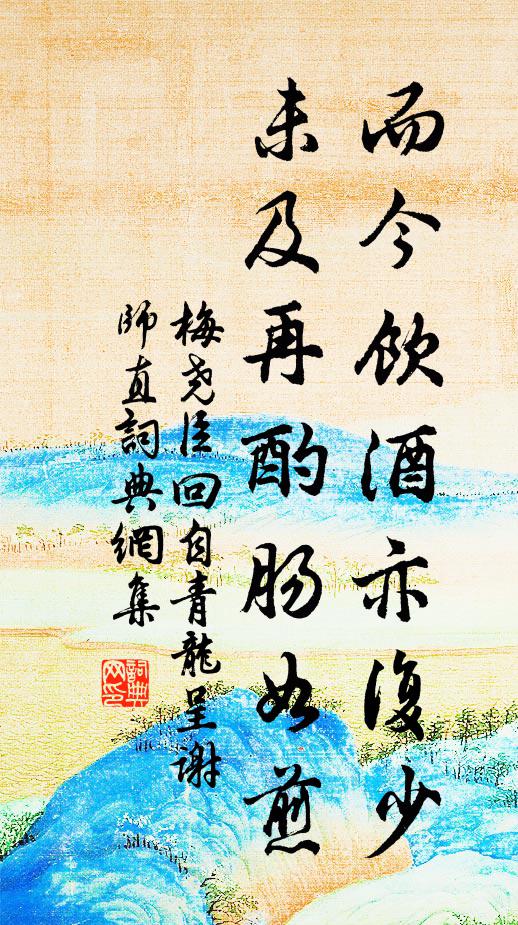 而今飲酒亦復少
未及再酌肠如煎
梅尧臣回自青龍呈謝
師直詞典網集
詞典网印